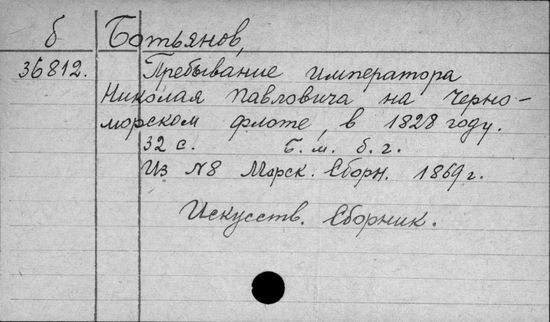 б Ботьянов,
36812. Пребывание императора
Николая Павловича на Черно-
морском флоте, в 1828 году.
32 с. Б. м. б. г.
Из №8 Морск. Сборн. 1869 г.
Искусств. Сборник.